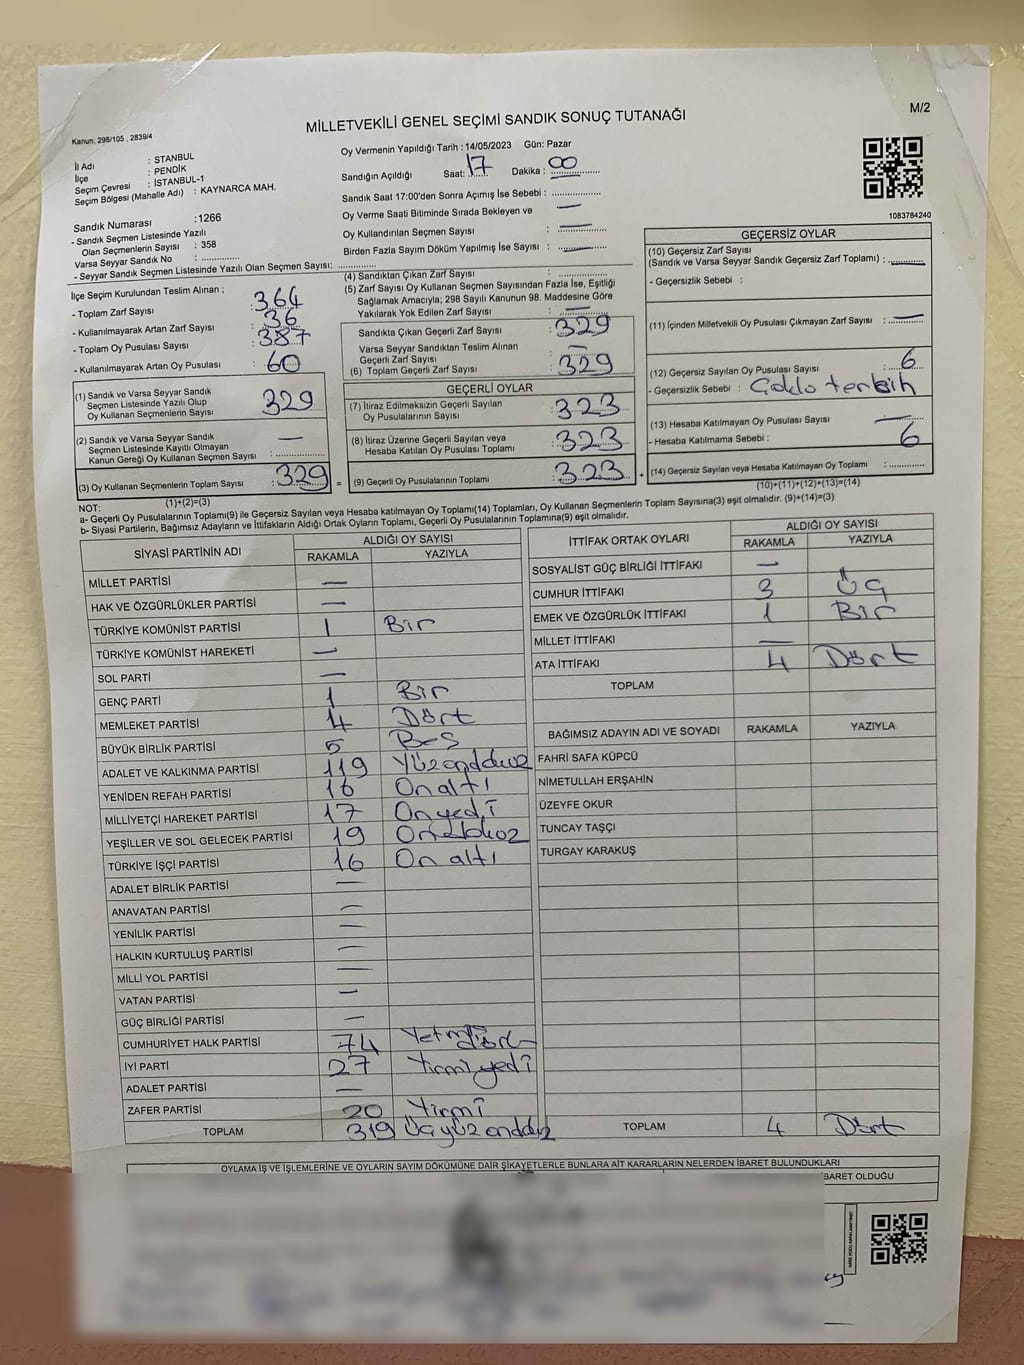 M/2
MİLLETVEKİLİ GENEL SEÇİMİ SANDIK SONUÇ TUTANAĞI
Kanun: 298/105 , 2839/4
İl Adı : STANBUL
İlçe : PENDİK
Seçim Çevresi : İSTANBUL-1
Seçim Bölgesi (Mahalle Adı) : KAYNARCA MAH.
Sandık Numarası :1266
- Sandık Seçmen Listesinde Yazılı
Olan Seçmenlerin Sayısı : 358
Varsa Seyyar Sandık No :
- Seyyar Sandık Seçmen Listesinde Yazılı Olan Seçmen Sayısı:
Oy Vermenin Yapıldığı Tarih : 14/05/2023 Gün: Pazar
Sandığın Açıldığı Saat: 17 Dakika : 00
Sandık Saat 17:00'den Sonra Açımış İse Sebebi :
Oy Verme Saati Bitiminde Sırada Bekleyen ve
Oy Kullandırılan Seçmen Sayısı : —
Birden Fazla Sayım Döküm Yapılmış İse Sayısı : —
1083784240
İlçe Seçim Kurulundan Teslim Alınan ;
- Toplam Zarf Sayısı : 364
- Kullanılmayarak Artan Zarf Sayısı : 36
- Toplam Oy Pusulası Sayısı : 387
- Kullanılmayarak Artan Oy Pusulası : 60
(1) Sandık ve Varsa Seyyar Sandık
Seçmen Listesinde Yazılı Olup
Oy Kullanan Seçmenlerin Sayısı : 329
(2) Sandık ve Varsa Seyyar Sandık
Seçmen Listesinde Kayıtlı Olmayan
Kanun Gereği Oy Kullanan Seçmen Sayısı : —
(3) Oy Kullanan Seçmenlerin Toplam Sayısı : 329 =
(1)+(2)=(3)
(4) Sandıktan Çıkan Zarf Sayısı :
(5) Zarf Sayısı Oy Kullanan Seçmen Sayısından Fazla İse, Eşitliği
Sağlamak Amacıyla; 298 Sayılı Kanunun 98. Maddesine Göre
Yakılarak Yok Edilen Zarf Sayısı : —
Sandıkta Çıkan Geçerli Zarf Sayısı : 329
Varsa Seyyar Sandıktan Teslim Alınan
Geçerli Zarf Sayısı : —
(6) Toplam Geçerli Zarf Sayısı : 329
GEÇERLİ OYLAR
(7) İtiraz Edilmeksizin Geçerli Sayılan
Oy Pusulalarının Sayısı : 323
(8) İtiraz Üzerine Geçerli Sayılan veya
Hesaba Katılan Oy Pusulası Toplamı : 323
(9) Geçerli Oy Pusulalarının Toplamı : 323 +
GEÇERSİZ OYLAR
(10) Geçersiz Zarf Sayısı
(Sandık ve Varsa Seyyar Sandık Geçersiz Zarf Toplamı) : —
- Geçersizlik Sebebi :
(11) İçinden Milletvekili Oy Pusulası Çıkmayan Zarf Sayısı : —
(12) Geçersiz Sayılan Oy Pusulası Sayısı : 6
- Geçersizlik Sebebi :
(13) Hesaba Katılmayan Oy Pusulası Sayısı : —
- Hesaba Katılmama Sebebi : 6
(14) Geçersiz Sayılan veya Hesaba Katılmayan Oy Toplamı :
(10)+(11)+(12)+(13)=(14)
NOT:
a- Geçerli Oy Pusulalarının Toplamı(9) ile Geçersiz Sayılan veya Hesaba katılmayan Oy Toplamı(14) Toplamları, Oy Kullanan Seçmenlerin Toplam Sayısına(3) eşit olmalıdır. (9)+(14)=(3)
b- Siyasi Partilerin, Bağımsız Adayların ve İttifakların Aldığı Ortak Oyların Toplamı, Geçerli Oy Pusulalarının Toplamına(9) eşit olmalıdır.
SİYASİ PARTİNİN ADI ALDIĞI OY SAYISI
RAKAMLA YAZIYLA
MİLLET PARTİSİ —
HAK VE ÖZGÜRLÜKLER PARTİSİ —
TÜRKİYE KOMÜNİST PARTİSİ 1 Bir
TÜRKİYE KOMÜNİST HAREKETİ —
SOL PARTİ —
GENÇ PARTİ 1 Bir
MEMLEKET PARTİSİ 4 Dört
BÜYÜK BİRLİK PARTİSİ 5 Beş
ADALET VE KALKINMA PARTİSİ 119
YENİDEN REFAH PARTİSİ 16 On altı
MİLLİYETÇİ HAREKET PARTİSİ 17 On yedi
YEŞİLLER VE SOL GELECEK PARTİSİ 19
TÜRKİYE İŞÇİ PARTİSİ 16 On altı
ADALET BİRLİK PARTİSİ —
ANAVATAN PARTİSİ —
YENİLİK PARTİSİ —
HALKIN KURTULUŞ PARTİSİ —
MİLLİ YOL PARTİSİ —
VATAN PARTİSİ —
GÜÇ BİRLİĞİ PARTİSİ —
CUMHURİYET HALK PARTİSİ 74
İYİ PARTİ 27 Yirmi yedi
ADALET PARTİSİ —
ZAFER PARTİSİ 20 Yirmi
TOPLAM 319
İTTİFAK ORTAK OYLARI ALDIĞI OY SAYISI
RAKAMLA YAZIYLA
SOSYALİST GÜÇ BİRLİĞİ İTTİFAKI —
CUMHUR İTTİFAKI 3 Üç
EMEK VE ÖZGÜRLÜK İTTİFAKI 1 Bir
MİLLET İTTİFAKI —
ATA İTTİFAKI 4 Dört
TOPLAM
BAĞIMSIZ ADAYIN ADI VE SOYADI RAKAMLA YAZIYLA
FAHRİ SAFA KÜPCÜ
NİMETULLAH ERŞAHİN
ÜZEYFE OKUR
TUNCAY TAŞÇI
TURGAY KARAKUŞ
TOPLAM 4 Dört
OYLAMA İŞ VE İŞLEMLERİNE VE OYLARIN SAYIM DÖKÜMÜNE DAİR ŞİKAYETLERLE BUNLARA AİT KARARLARIN NELERDEN İBARET BULUNDUKLARI
BARET OLDUĞU